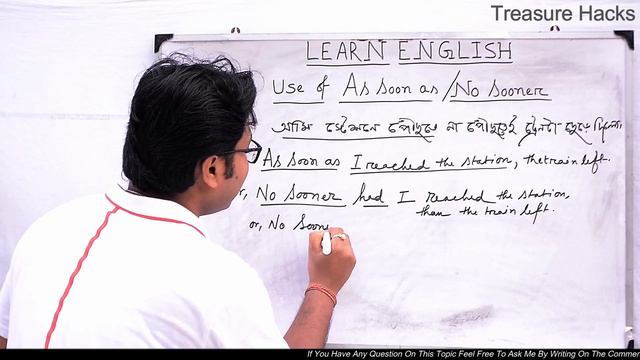 Treasure Hacks
LEARN ENGLISH
Use of As soon as/No sooner
আমি স্টেশনে পৌঁছতে না পৌঁছতেই ট্রেনটা ছেড়ে দিলো।
As soon as I reached the station, the train left.
r, No Sooner had I reached the station,
than the train left.
or, No Soone
If You Have Any Question On This Topic Feel Free To Ask Me By Writing On The Commen